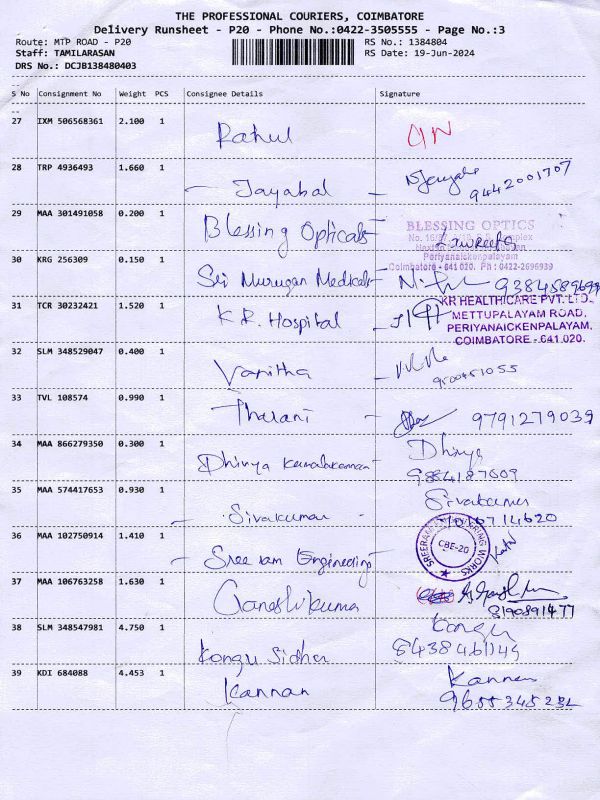 THE PROFESSIONAL COURIERS, COIMBATORE
Delivery Runsheet - P20 - Phone No.:0422-3505555 - Page No.:3
Route: MTP ROAD - P20 RS No.: 1384804
Staff: TAMILARASAN RS Date: 19-Jun-2024
DRS No.: DCJB138480403
S No Consignment No Weight PCS Consignee Details Signature
27 IXM 506568361 2.100 1 Rahul
28 TRP 4936493 1.660 1 Jayabal 9442001707
29 MAA 301491058 0.200 1 Blessing Opticals
BLESSING OPTICS
Periyanaickenpalayam
Coimbatore - 641 020. Ph : 0422-2696939
30 KRG 256309 0.150 1 Sri Murugan Medicals 9384589699
31 TCR 30232421 1.520 1 K.R. Hospital
KR HEALTHCARE PVT. LTD.
METTUPALAYAM ROAD,
PERIYANAICKENPALAYAM,
COIMBATORE - 641 020.
32 SLM 348529047 0.400 1 Vanitha
33 TVL 108574 0.990 1 Tharani 9791279039
34 MAA 866279350 0.300 1 Dhivya Dhivya
35 MAA 574417653 0.930 1 Sivakumar Sivakumar
36 MAA 102750914 1.410 1 Sree ram Engineering
SREERAM ENGINEERING WORKS
CBE-20
37 MAA 106763258 1.630 1 Ganeshkuma
8190891477
38 SLM 348547981 4.750 1 Kongu Sidha Kongu
39 KDI 684088 4.453 1 Kannan Kannan